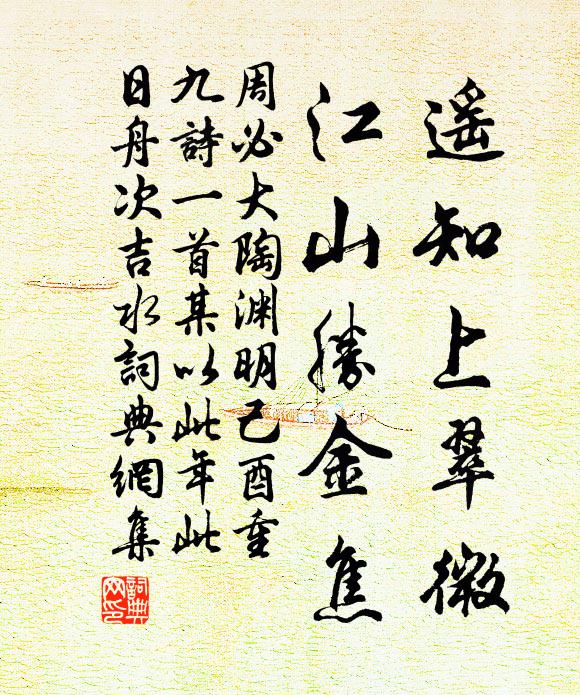 遥知上翠微
江山勝金焦
周必大陶渊明己酉重
九詩一首某以此年此
日舟次吉水詞典網集
詞典
网印